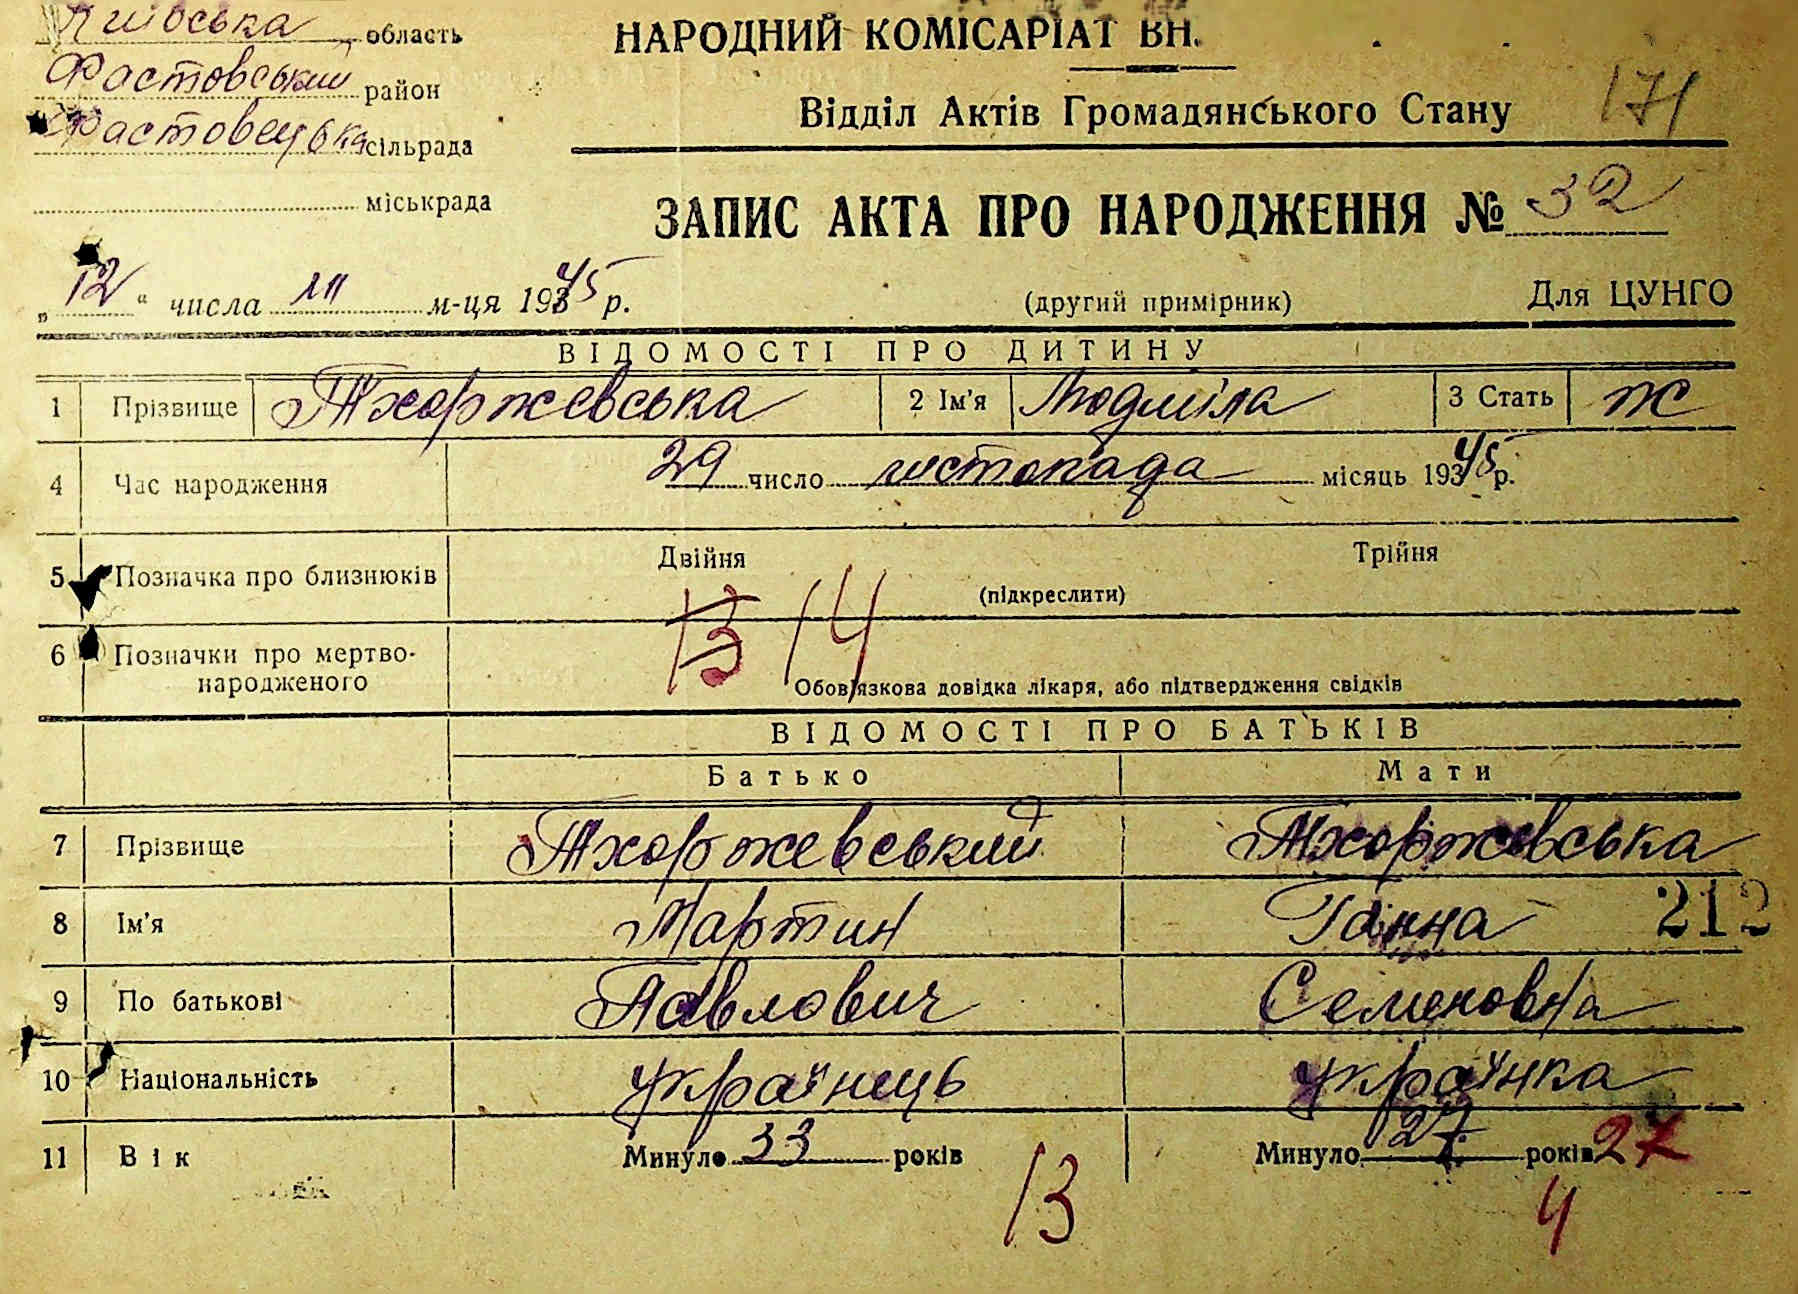 Київська область
Фастовський район
Фастовецька сільрада
міськрада
НАРОДНИЙ КОМІСАРІАТ ВН.
Відділ Актів Громадянського Стану
171
ЗАПИС АКТА ПРО НАРОДЖЕННЯ № 32
„12“ числа м-ця 1945 р.
(другий примірник)
Для ЦУНГО
ВІДОМОСТІ ПРО ДИТИНУ
1 Прізвище Тхоржевська 2 Ім'я Людміла 3 Стать ж
4 Час народження 29 число листопада місяць 1945 р.
5 Позначка про близнюків Двійня Трійня
(підкреслити)
13 14
6 Позначки про мертво-
народженого
Обов'язкова довідка лікаря, або підтвердження свідків
ВІДОМОСТІ ПРО БАТЬКІВ
Батько Мати
7 Прізвище Тхоржевський Тхоржевська
8 Ім'я Мартин Ганна 212
9 По батькові Павлович Семеновна
10 Національність українець українка
11 Вік Минуло 33 років Минуло 27 років 27
13 4